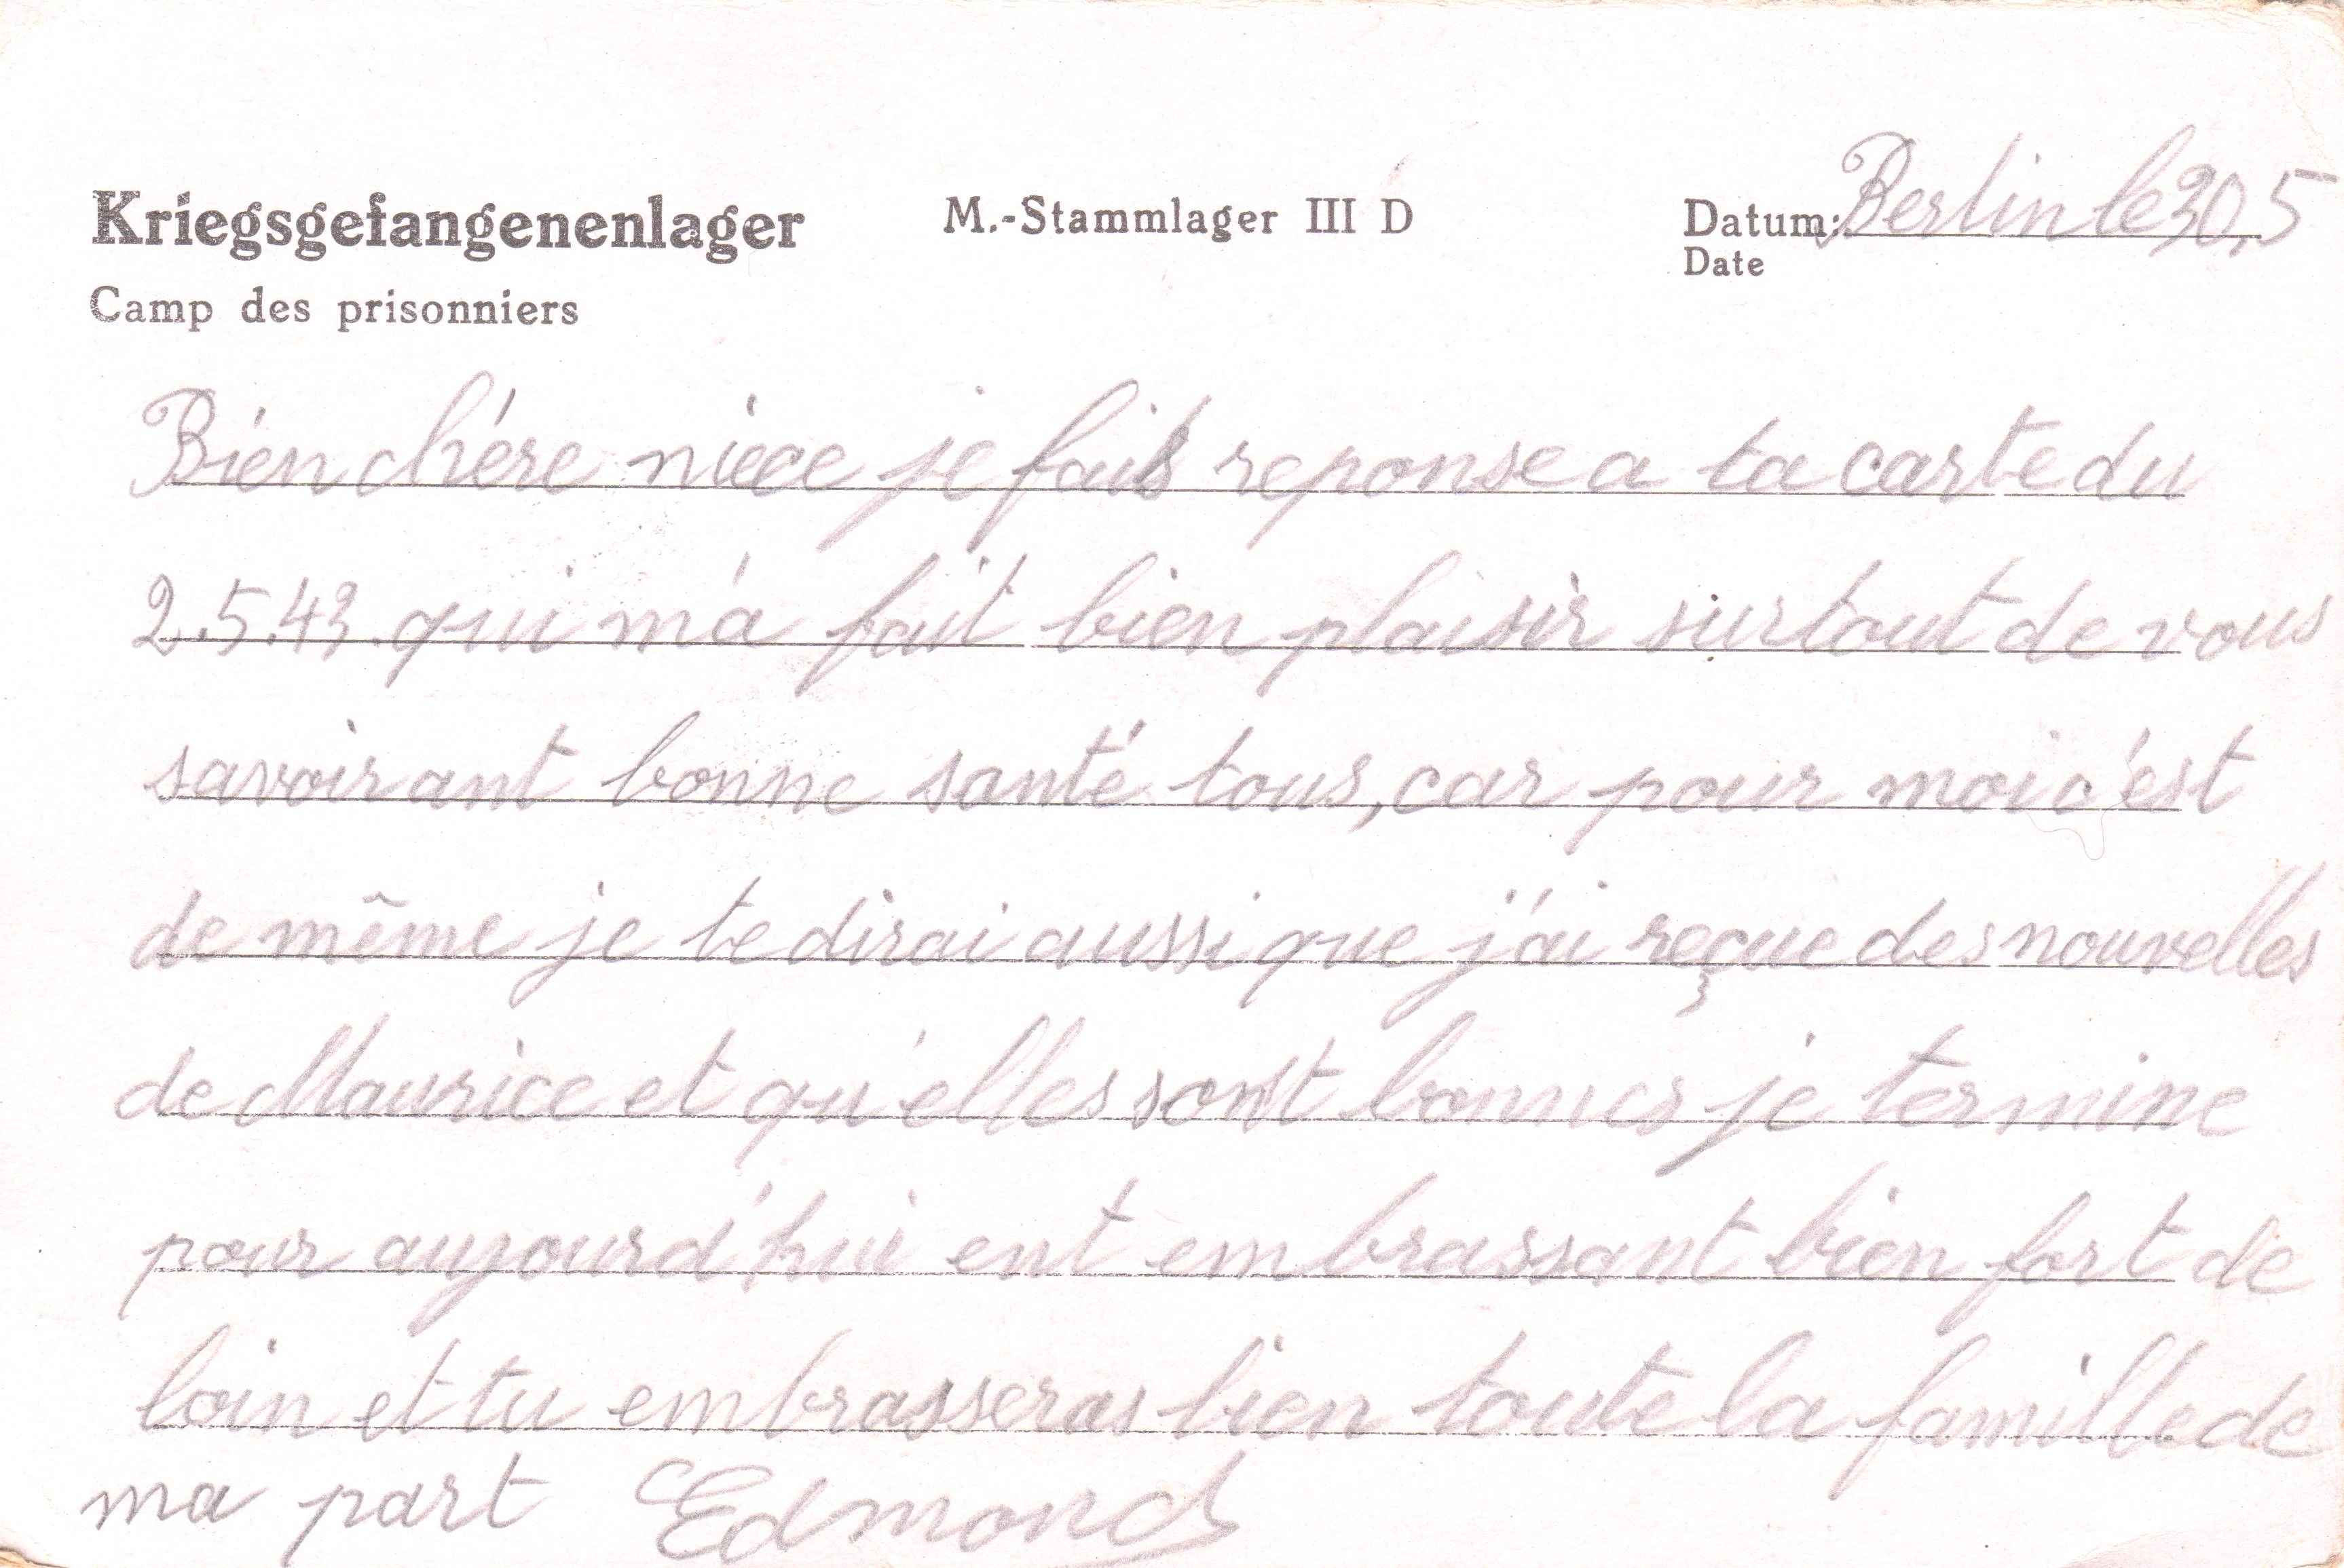 Kriegsgefangenenlager M.-Stammlager III D Datum: Berlin le 30,5
Camp des prisonniers Date
Bien chére niéce je fais reponse a ta carte du
2.5.43. qui m'a fait bien plaisir surtout de vous
savoir ant bonne santé tous, car pour moi c'est
de même je te dirai aussi que j'ai reçue des nouvelles
de Maurice et qu'elles sont bonnes je termine
pour aujourd'hui ent embrassant bien fort de
loin et tu embrasseras bien toute la famille de
ma part Edmond